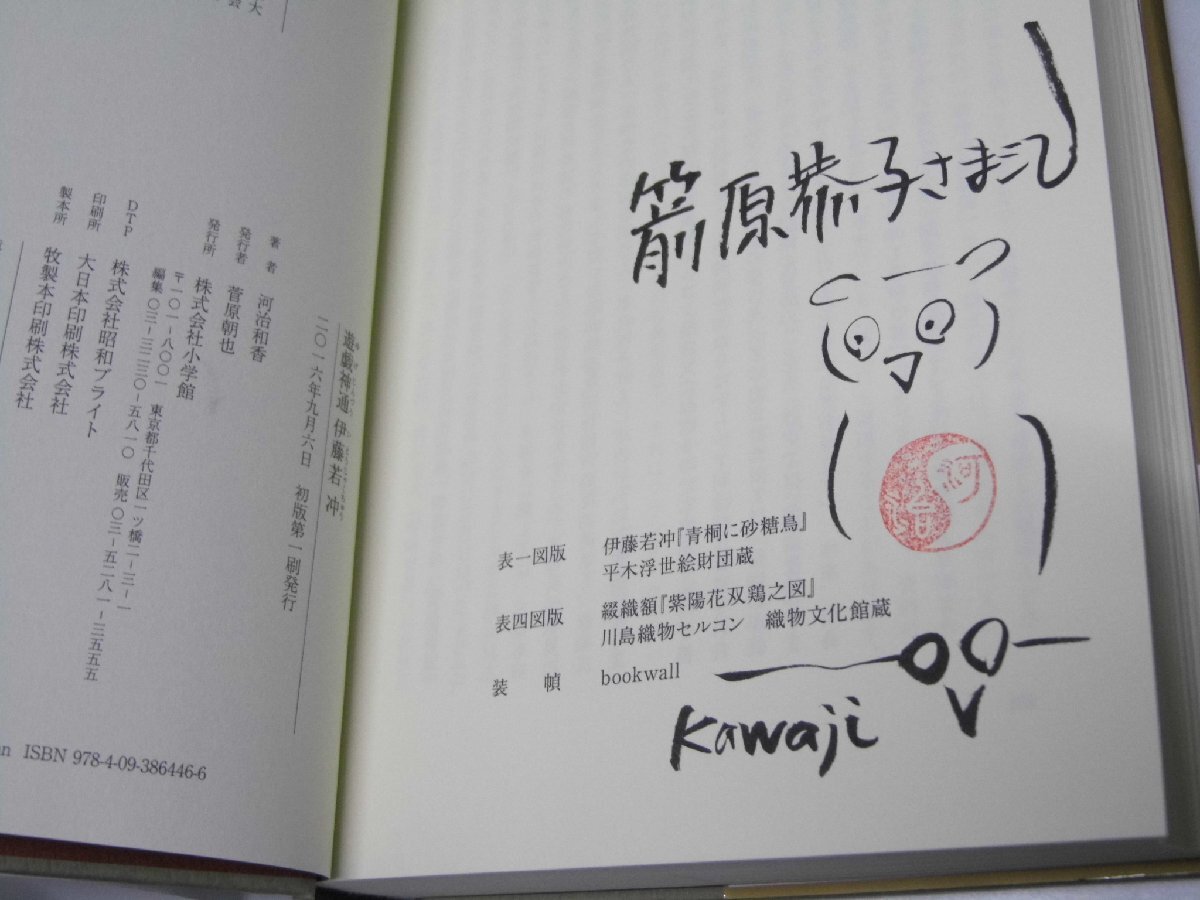 遊戯神通 伊藤若冲
二〇一六年九月六日 初版第一刷発行
著者 河治和香
発行者 菅原朝也
発行所 株式会社小学館
〒一〇一-八〇〇一 東京都千代田区一ツ橋二-三-一
編集〇三-三二三〇-五八一〇 販売〇三-五二八一-三五五五
DTP 株式会社昭和ブライト
印刷所 大日本印刷株式会社
製本所 牧製本印刷株式会社
ISBN 978-4-09-386446-6
箭原恭子さま
河治
表一図版 伊藤若冲『青桐に砂糖鳥』
平木浮世絵財団蔵
表四図版 綴織額『紫陽花双鶏之図』
川島織物セルコン 織物文化館蔵
装幀 bookwall
Kawaji